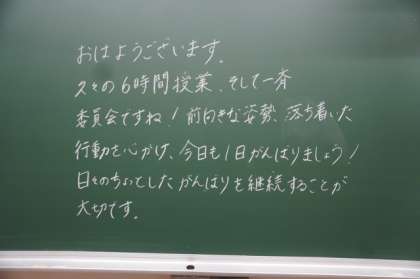 おはようございます。
久々の6時間授業、そして一斉
委員会ですね！前向きな姿勢、落ち着いた
行動を心がけ、今日も1日がんばりましょう！
日々のちょっとしたがんばりを継続することが
大切です。